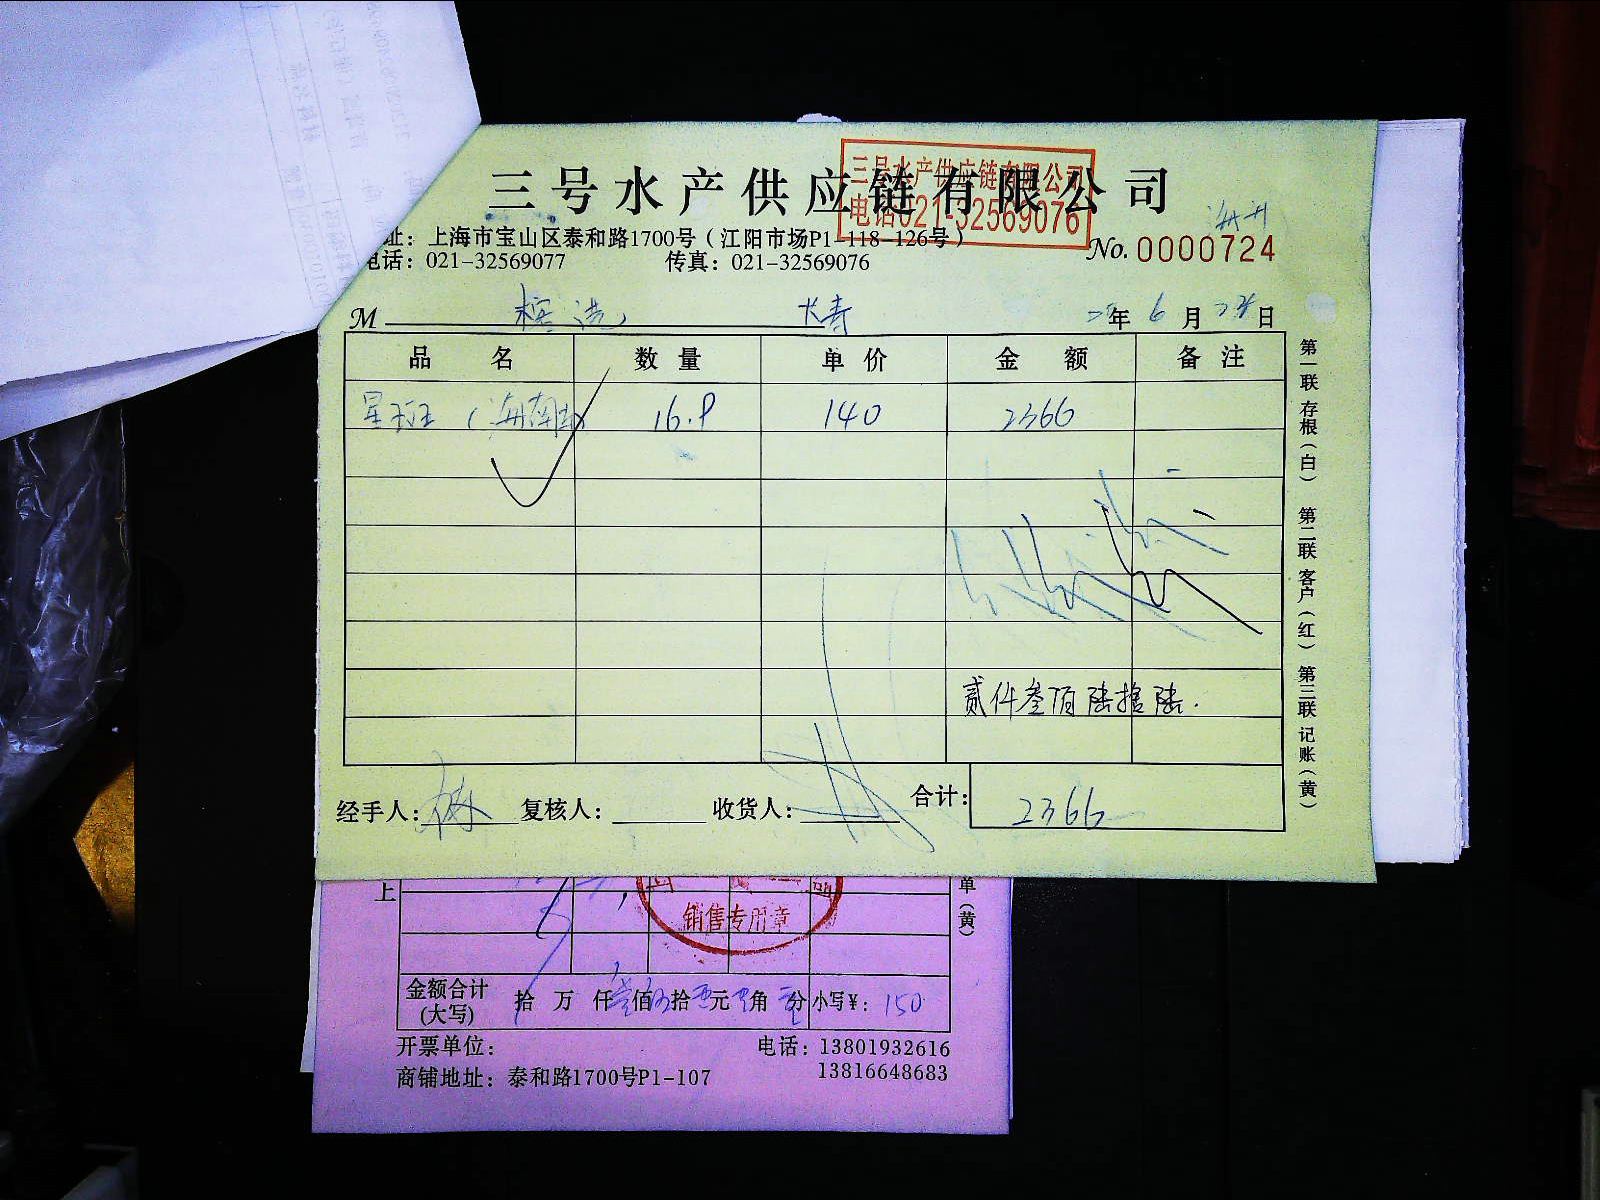 三号水产供应链有限公司
三号水产供应链有限公司
电话021-32569076
址：上海市宝山区泰和路1700号（江阳市场P1-118-126号）
电话：021-32569077 传真：021-32569076
No. 0000724
M 榕选 长寿 年 6 月 日
品名 数量 单价 金额 备注
星斑（海南 16.9 140 2366
贰仟叁佰陆拾陆.
经手人： 复核人： 收货人： 合计： 2366
第一联 存根（白） 第二联 客户（红） 第三联 记账（黄）
上
单（黄）
销售专用章
金额合计(大写) 拾 万 仟壹佰 拾 元 角 分 小写¥：150
开票单位： 电话：13801932616
商铺地址：泰和路1700号P1-107 13816648683